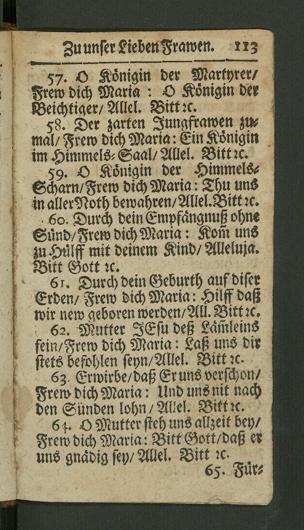 Zu unser Lieben Frawen. 113
57. O Königin der Martyrer/
Frew dich Maria : O Königin der
Beichtiger/ Allel. Bitt ꝛc.
58. Der zarten Jungfrawen zu-
mal/ Frew dich Maria: Ein Königin
im Himmels-Saal/ Allel. Bitt ꝛc.
59. O Königin der Himmels-
Scharn/ Frew dich Maria: Thu uns
in aller Noth bewahren/ Allel. Bitt ꝛc.
60. Durch dein Empfängnuß ohne
Sünd/ Frew dich Maria: Kom̃ uns
zu Hülff mit deinem Kind/ Alleluja.
Bitt Gott ꝛc.
61. Durch dein Geburth auf diser
Erden/ Frew dich Maria: Hilff daß
wir new geboren werden/ All. Bitt ꝛc.
62. Mutter JEsu deß Läm̃leins
fein/ Frew dich Maria: Laß uns dir
stets befohlen seyn/ Allel. Bitt ꝛc.
63. Erwirbe/ daß Er uns verschon/
Frew dich Maria: Und uns nit nach
den Sünden lohn/ Allel. Bitt ꝛc.
64. O Mutter steh uns allzeit bey/
Frew dich Maria: Bitt Gott/ daß er
uns gnädig sey/ Allel. Bitt ꝛc.
65. Für-